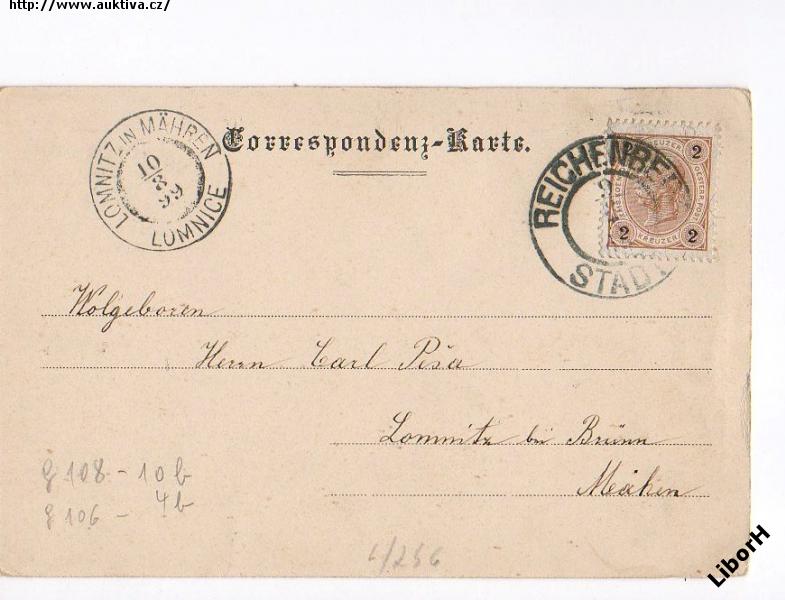 http://www.auktiva.cz/
LOMNITZ IN MÄHREN
10
8
99
LOMNICE
Correspondenz-Karte.
REICHENBE
STADT
2
KREUZER
2 KREUZER 2
Wolgeboren
Herrn Carl Peša
Lomnitz bei Brünn
Mähren
g 108 - 10b
g 106 - 4b
L/256
LiborH